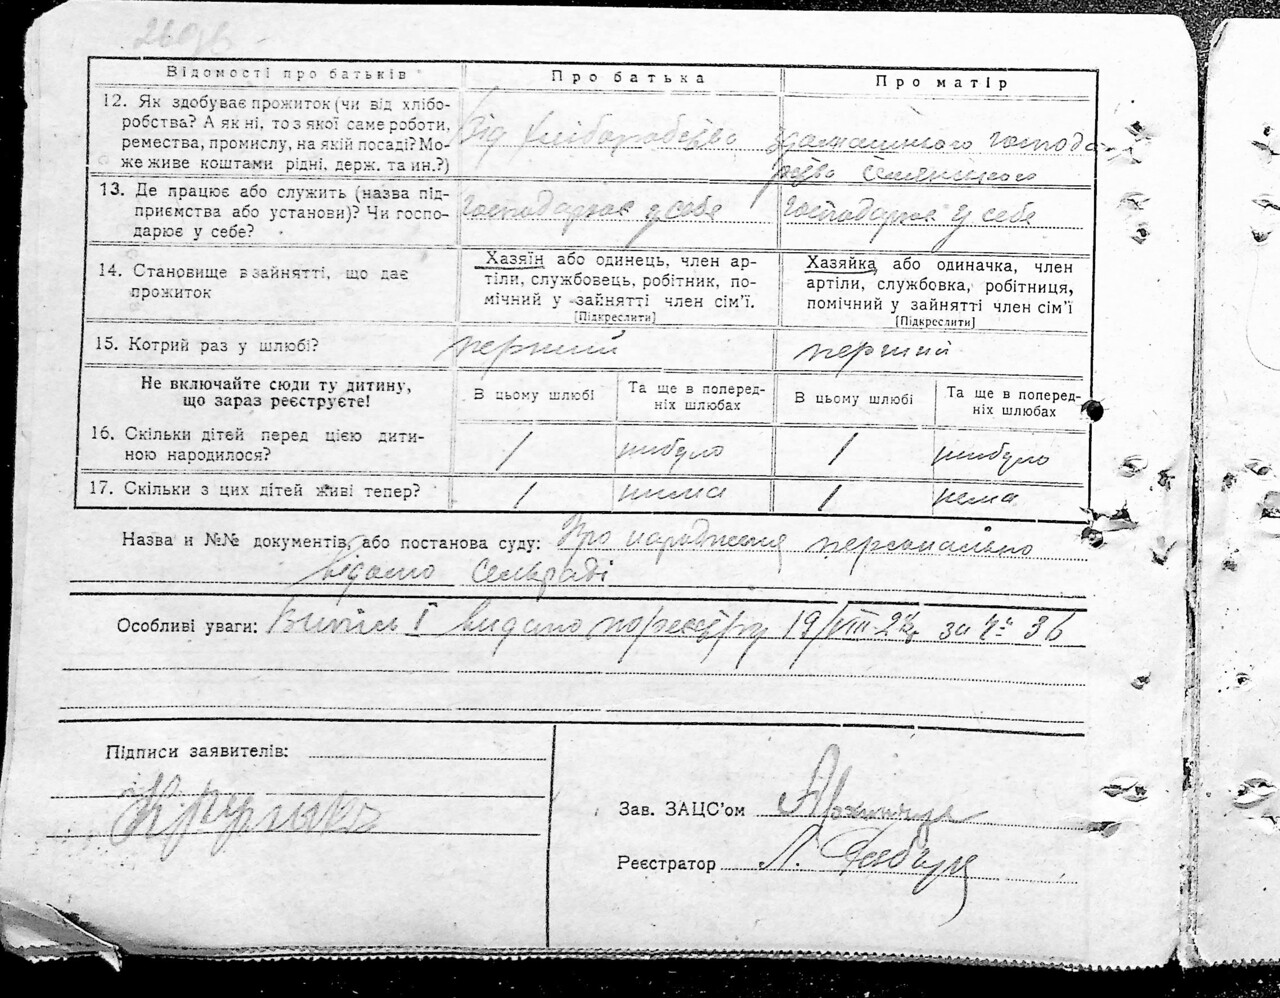 260зв
Відомості про батьків Про батька Про матір
12. Як здобуває прожиток (чи від хлібо-
робства? А як ні, то з якої саме роботи,
ремества, промислу, на якій посаді? Мо-
же живе коштами рідні, держ. та ин.?)
Від хліборобства
домашнього господа-
рства
13. Де працює або служить (назва під-
приємства або установи)? Чи госпо-
дарює у себе?
Господарює у себе
Господарює у себе
14. Становище в зайнятті, що дає
прожиток
Хазяїн або одинець, член ар-
тіли, службовець, робітник, по-
мічний у зайнятті член сім'ї.
[Підкреслити]
Хазяйка або одиначка, член
артіли, службовка, робітниця,
помічний у зайнятті член сім'ї
[Підкреслити]
15. Котрий раз у шлюбі? перший перший
Не включайте сюди ту дитину,
що зараз реєструєте!
В цьому шлюбі
Та ще в поперед-
ніх шлюбах
В цьому шлюбі
Та ще в поперед-
ніх шлюбах
16. Скільки дітей перед цією дити-
ною народилося?
1 небуло 1 небуло
17. Скільки з цих дітей живі тепер? 1 нима 1 нема
Назва и №№ документів, або постанова суду: Про народження персонально
відомо сельраді
Особливі уваги: Випис І видано по реєстру 19/VIII-27р за № 36
Підписи заявителів:
Зав. ЗАЦС'ом
Реєстратор Л.